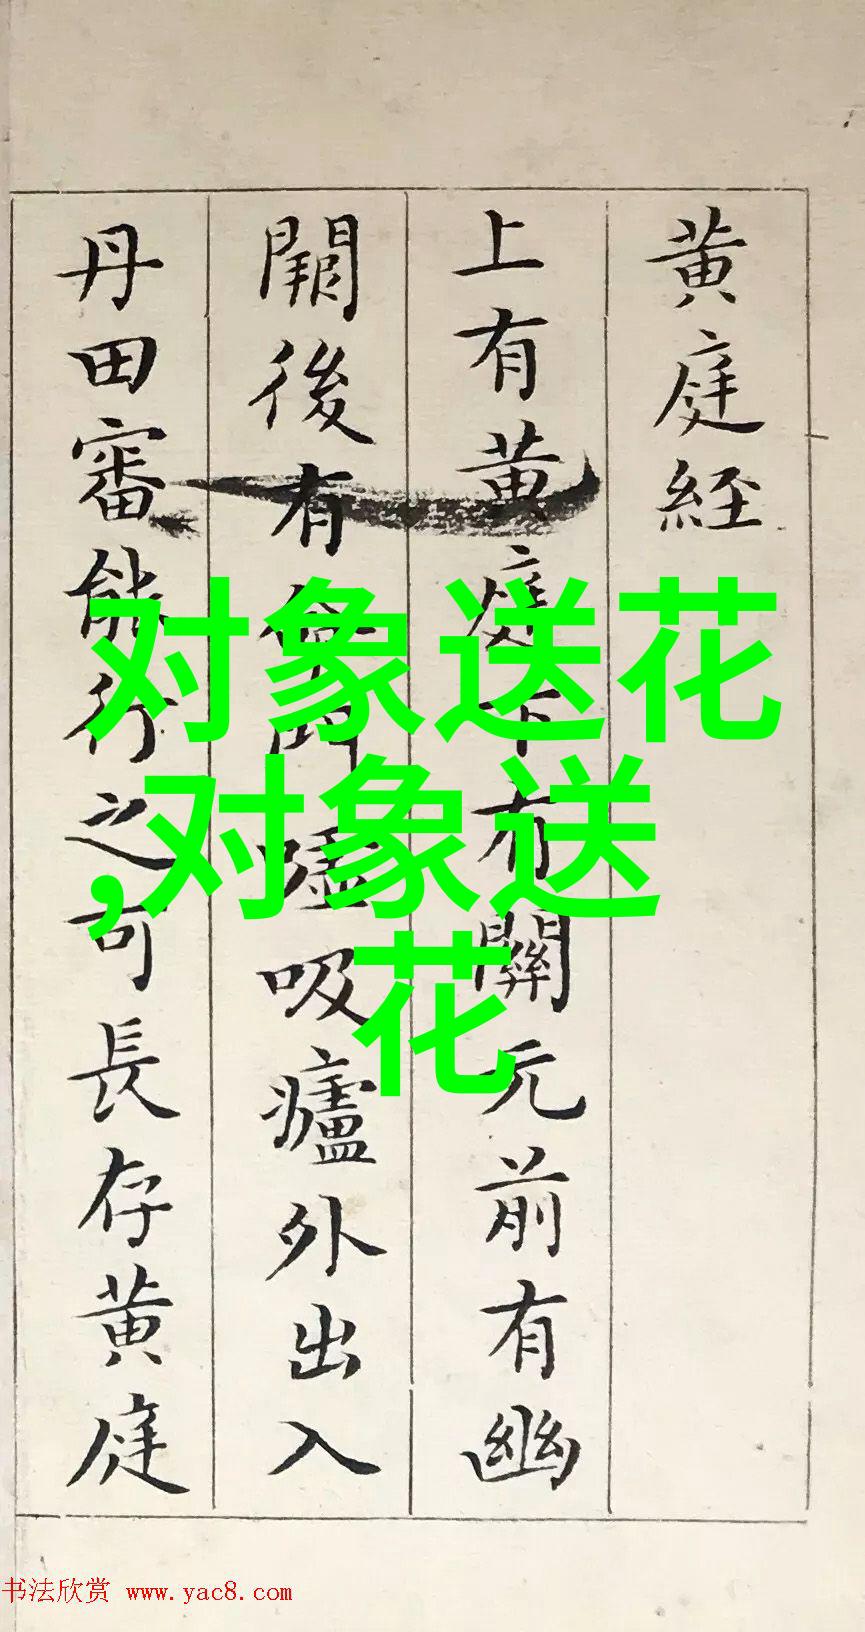 黄庭経
上有黄庭下有關元前有幽
闕後有命門嘘吸廬外出入
丹田審能行之可長存黄庭
对象送花
,对象送
花
书法欣赏 www.yac8.com